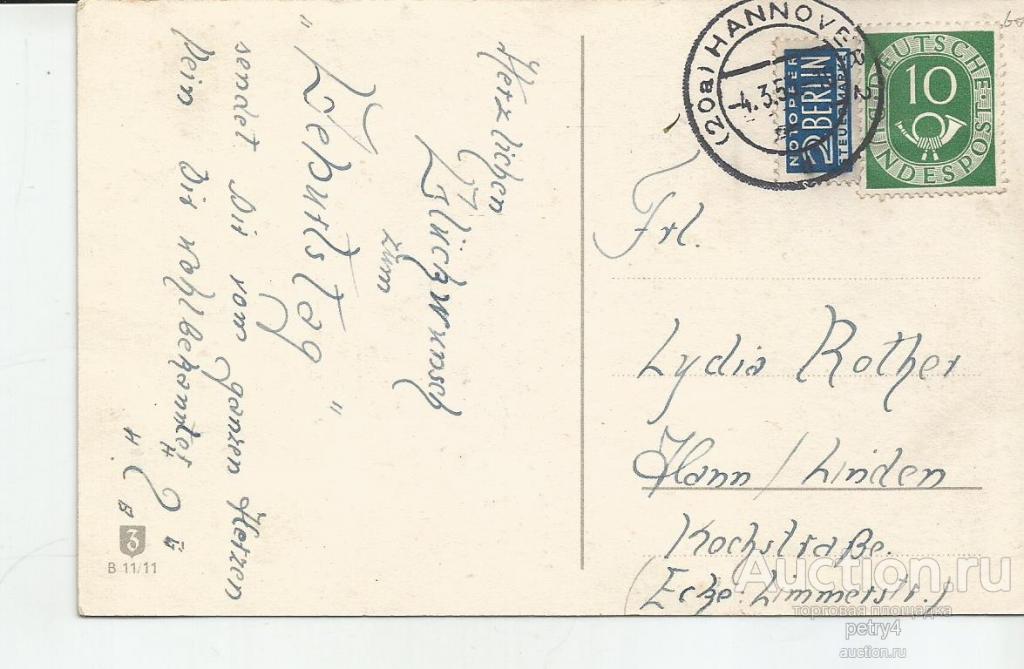 Herzlichen
Glückwunsch
zum
" Geburtstag "
sendet Dir vom ganzen Herzen
Dein Dir wohlbekannter
3
B 11/11
(20a) HANNOVER 2
-4.3.5
NOTOPFER
2 BERLIN
STEUERMARKE
DEUTSCHE
10
BUNDESPOST
Frl.
Lydia Rother
Hann / Linden
Kochstraße.
(Ecke Limmerstr.)
Auction.ru
торговая площадка
petry4
auction.ru